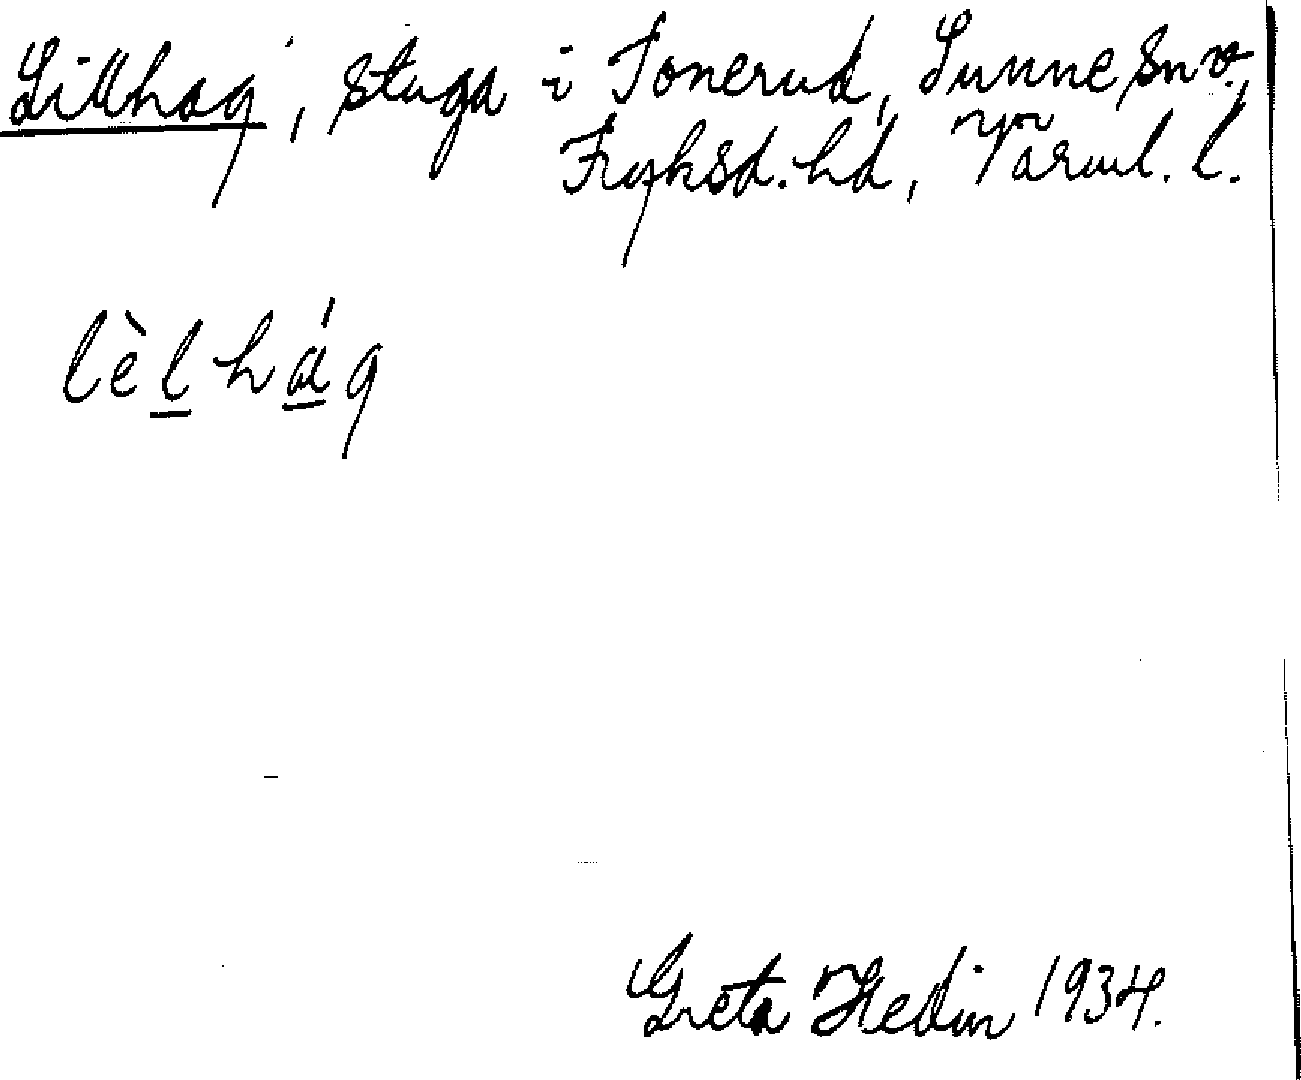 Lillhag, stuga i Tonerud, Sunne snv.,
Fryksd. hd, Värml. l.
lèlhág
Greta Hedin 1934.